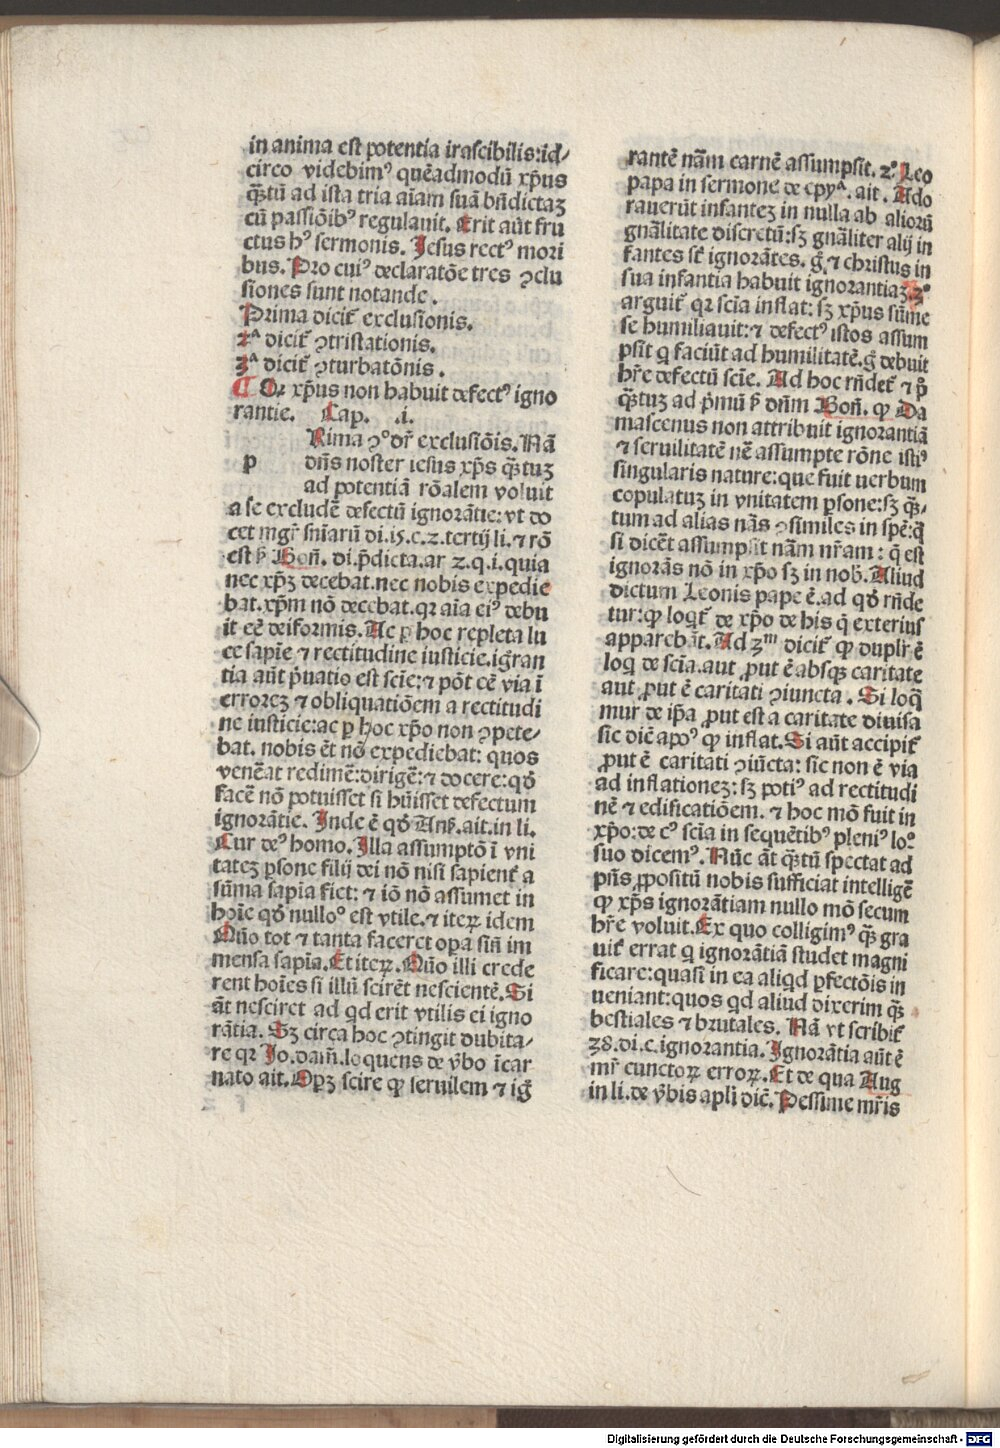 in anima est potentia irascibilis:id-/
circo videbimꝰ quēadmodū xp̄us
qꝫ̄tū ad ista tria aīam suā bn̄dictaꝫ
cū passiōibꝰ regulauit. Erit aūt fru
ctus hꝰ sermonis. Jesus rectꝰ mori
bus. Pro cuiꝰ declaratōe tres ꝯclu
siones sunt notande.
Prima dicit̄ exclusionis.
2ᵃ dicit̄ ꝯtristationis.
3ᵃ dicit̄ ꝯturbatōnis.
¶ Qr xp̄us non habuit defectꝰ igno
rantie. Cap. .i.
Rima ꝯᵒ dr̄ exclusiōis. Nā
p dn̄s noster iesus xp̄s qꝫ̄tuꝫ
ad potentiā rōalem voluit
a se excludē defectū ignorātie: vt do
cet mgr̄ snīarū di.15.c.2.tertij li. ⁊ rō
est ẜ Boñ. di.p̄dicta.ar 2.q.i.quia
nec xpꝫ decebat.nec nobis expedie
bat.xp̄m nō decebat.qr aīa eiꝰ debu
it eē deiformis. Ac ꝑ hoc repleta lu
ce sapīe ⁊ rectitudine iusticie.igr̄an
tia aūt p̄uatio est scīe:⁊ pōt eē via ī
errorez ⁊ obliquatiōem a rectitudi
ne iusticie:ac ꝑ hoc xp̄o non ꝯpete-/
bat. nobis ēt nō expediebat: quos
venēat redimē:dirigē:⁊ docere:qđ
facē nō potuisset si hūisset defectum
ignorātie. Inde ē qđ Anẜ.ait.in li.
Cur deꝰ homo. Illa assumptō ī vni
tateꝫ ꝑsone filij dei nō nisi sapient̄ a
sūma sapīa fiet: ⁊ iō nō assumet in
hoīe qđ nulloᵒ est vtile.⁊ iteꝝ idem
Qūo tot ⁊ tanta faceret oꝑa siñ im
mensa sapīa. Et iteꝝ. Qūo illi crede
rent hoīes si illū scirēt nescientē. Si
āt nesciret ad qd erit vtilis ei igno
rātia. Sꝫ circa hoc ꝯtingit dubita-/
re qr Jo.dam̄.loquens de v̄bo īcar
nato ait. Opꝫ scire ꝙ seruilem ⁊ iḡ
rantē nām carnē assumpsit. 2ᵒ Leo
papa in sermone de epyᵃ. ait. Ado
rauerūt infanteꝫ in nulla ab aliorū
gnālitate discretū:sꝫ gnāliter alij in
fantes st̄ ignorātes. g̊ ⁊ christus in
sua infantia habuit ignorantiaꝫ.3ᵒ
arguit̄ qr scīa inflat: sꝫ xp̄us sūme
se humiliauit:⁊ defectꝰ istos assum
psit q faciūt ad humilitatē.g̊ debuit
hr̄e defectū scīe. Ad hoc rn̄det̄ ⁊ p̊
qꝫ̄tuꝫ ad p̄mū ẜ dn̄m Boñ. ꝙ Da
mascenus non attribuit ignorantiā
⁊ seruilitatē nē assumpte rōne istiꝰ
singularis nature:que fuit uerbum
copulatuꝫ in vnitatem ꝑsone:sꝫ qꝫ̄-/
tum ad alias nās ꝯsimiles in spē:q̄
si dicēt assumpsit nām nr̄am : q̄ est
ignorās nō in xp̄o sꝫ in nob̄. Aliud
dictum Leonis pape ē.ad qđ rn̄de
tur:ꝙ loqt̄ de xp̄o de his q̄ exterius
apparebāt. Ad 3ᵐ dicit̄ ꝙ duplr̄ ē
loq de scīa.aut ꝓut ē absqꝫ caritate
aut ꝓut ē caritati ꝯiuncta. Si loq̄
mur de ip̄a ꝓut est a caritate diuisa
sic dic̄ apoꝰ ꝙ inflat. Si aūt accipit̄
ꝓut ē caritati ꝯiūcta: sic non ē via
ad inflationeꝫ:sꝫ potiꝰ ad rectitudi
nē ⁊ edificatiōem. ⁊ hoc mō fuit in
xp̄o:de cꝰ scīa in sequētibꝰ pleniꝰ loᵒ
suo dicemꝰ. Nūc āt qꝫ̄tū spectat ad
pn̄s ꝓpositū nobis sufficiat intelligē
ꝙ xp̄s ignorātiam nullo mō secum
hr̄e voluit. Ex quo colligimꝰ qꝫ̄ gra
uit̄ errat q ignorātiā studet magni
ficare:quasi in ea aliqd ꝑfectōis in
ueniant:quos qd aliud dixerim qꝫ̄
bestiales ⁊ brutales. Nā vt scribit̄
38.di.c.ignorantia. Ignorātia aūt ē
mr̄ cunctoꝝ erroꝝ. Et de qua Aug
in li.de v̄bis apli dic̄. Pessime mr̄is
Digitalisierung gefördert durch die Deutsche Forschungsgemeinschaft - DFG